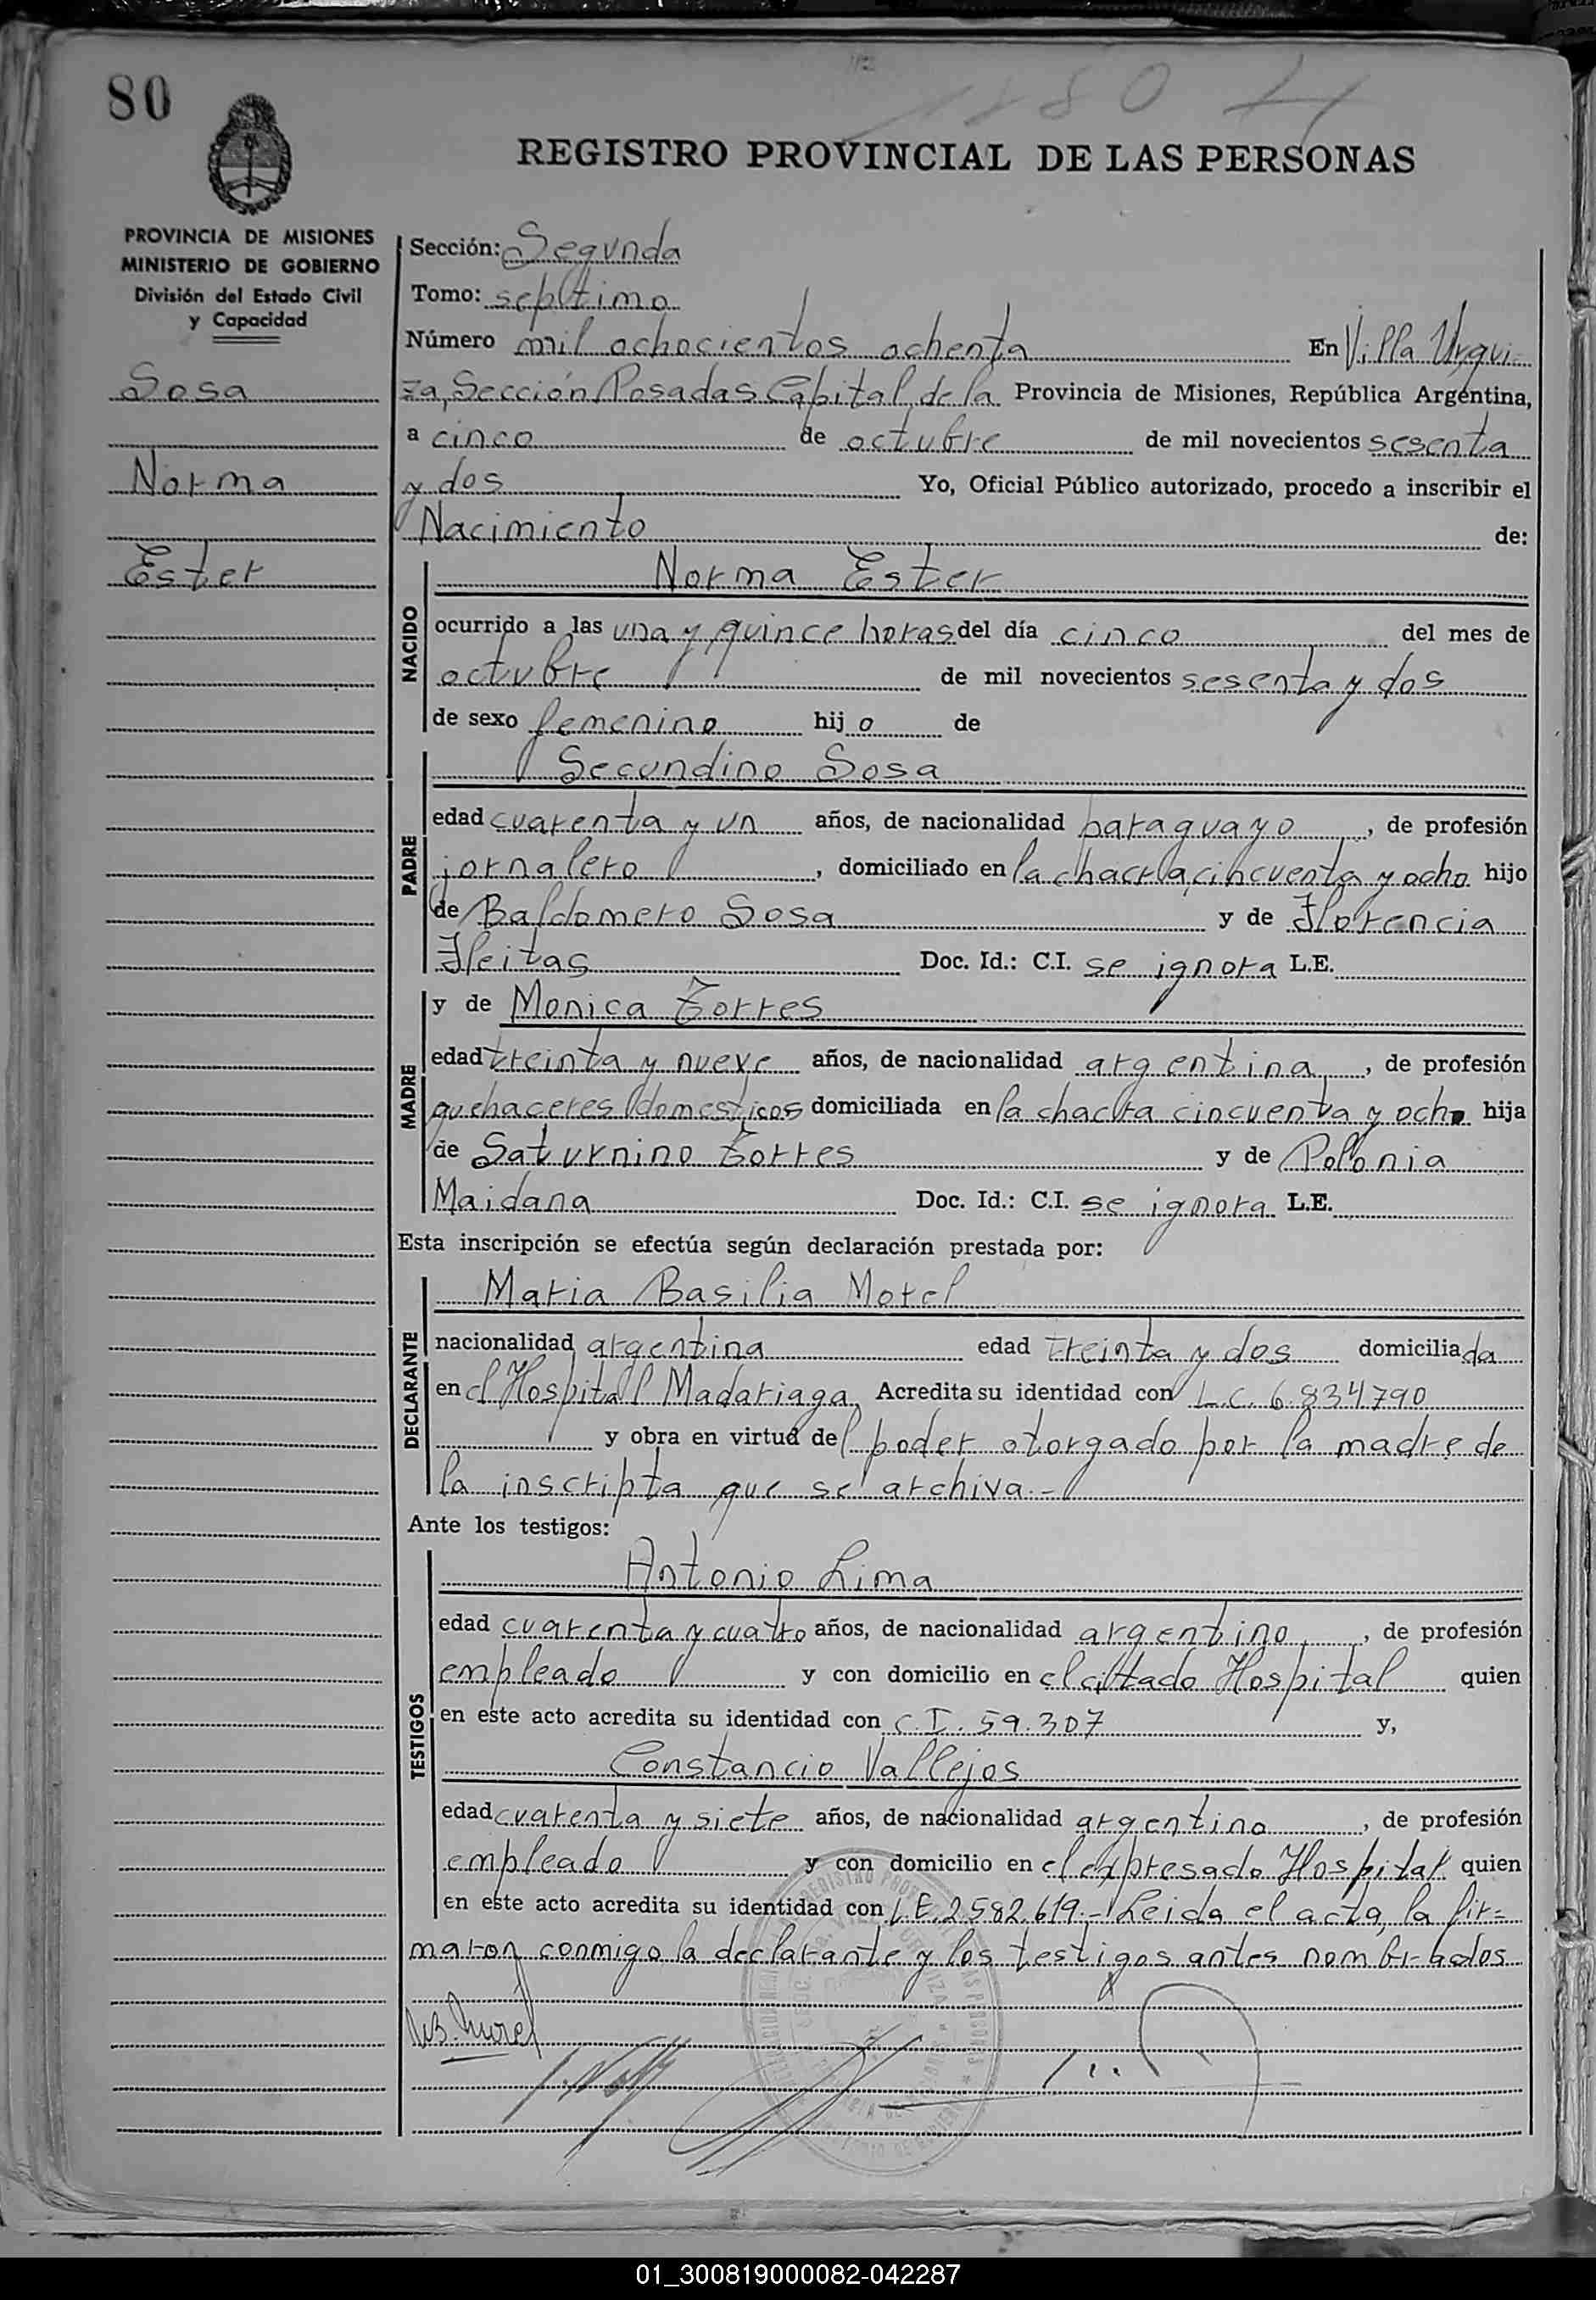 80
1880
REGISTRO PROVINCIAL DE LAS PERSONAS
PROVINCIA DE MISIONES
MINISTERIO DE GOBIERNO
División del Estado Civil
y Capacidad
Sosa
Norma
Ester
Sección: Segunda
Tomo: septimo
Número mil ochocientos ochenta En Villa Urqui-
za, Sección Posadas Capital de la Provincia de Misiones, República Argentina,
a cinco de octubre de mil novecientos sesenta
y dos Yo, Oficial Público autorizado, procedo a inscribir el
Nacimiento de:
NACIDO
Norma Ester
ocurrido a las una y quince horas del día cinco del mes de
octubre de mil novecientos sesenta y dos
de sexo femenino hij a de
PADRE
Secundino Sosa
edad cuarenta y un años, de nacionalidad paraguayo, de profesión
jornalero, domiciliado en la chacra cincuenta y ocho hijo
de Baldomero Sosa y de Florencia
Fleitas Doc. Id.: C.I. se ignora L.E.
MADRE
y de Monica Torres
edad treinta y nueve años, de nacionalidad argentina, de profesión
quehaceres domesticos domiciliada en la chacra cincuenta y ocho hija
de Saturnino Torres y de Polonia
Maidana Doc. Id.: C.I. se ignora L.E.
Esta inscripción se efectúa según declaración prestada por:
DECLARANTE
Maria Basilia Morel
nacionalidad argentina edad treinta y dos domiciliada
en el Hospital Madariaga, Acredita su identidad con L.C. 6.834790
y obra en virtud del poder otorgado por la madre de
la inscripta que se archiva.-
Ante los testigos:
TESTIGOS
Antonio Lima
edad cuarenta y cuatro años, de nacionalidad argentino, de profesión
empleado y con domicilio en el citado Hospital quien
en este acto acredita su identidad con C.I. 59.307 y,
Constancio Vallejos
edad cuarenta y siete años, de nacionalidad argentino, de profesión
empleado y con domicilio en el expresado Hospital quien
en este acto acredita su identidad con L.E. 2582.619.- Leida el acta, la fir=
maron conmigo la declarante y los testigos antes nombrados
M.B. Morel
01_300819000082-042287